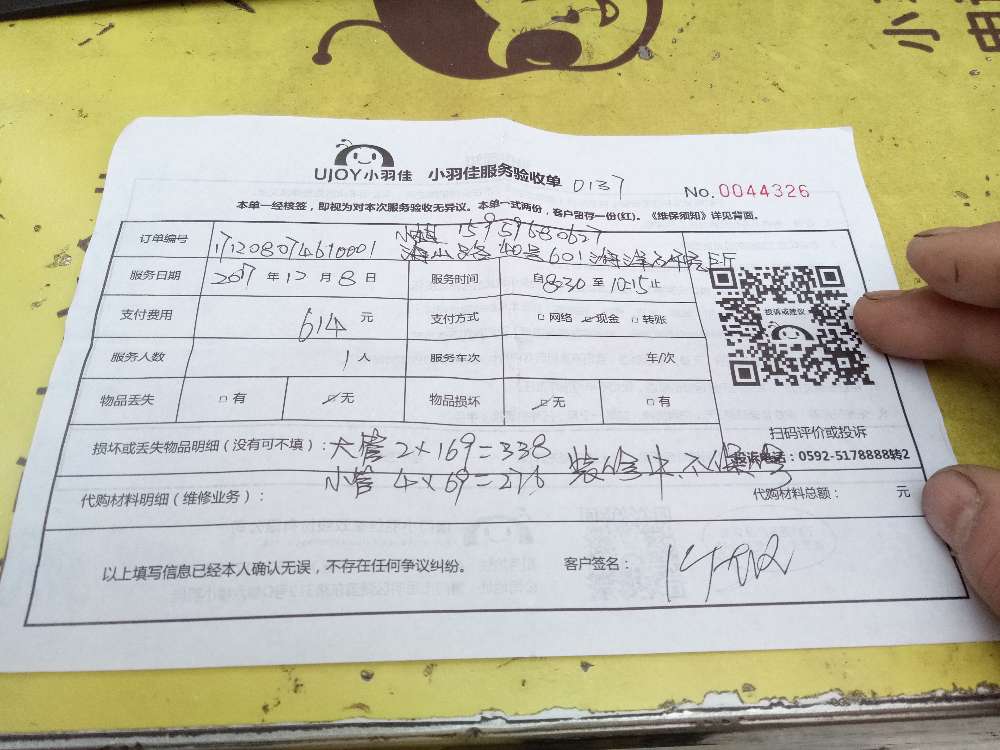 小
电
UJOY小羽佳 小羽佳服务验收单 0137
No.0044326
本单一经核签，即视为对本次服务验收无异议。本单一式两份，客户留存一份(红)。《维保须知》详见背面。
订单编号 171208074610001 15959680627
海山路40号601海洋
服务日期 2017年12月8日 服务时间 自8:30至10:15止
支付费用 614元 支付方式 □网络 ☑现金 □转账
投诉或建议
服务人数 1人 服务车次 车/次
物品丢失 □有 ☑无 物品损坏 ☑无 □有
扫码评价或投诉
损坏或丢失物品明细（没有可不填）：大管 2×169=338
投诉电话：0592-5178888转2
小管 4×69=276 装修中.不保修
代购材料明细（维修业务）： 代购材料总额： 元
以上填写信息已经本人确认无误，不存在任何争议纠纷。 客户签名：